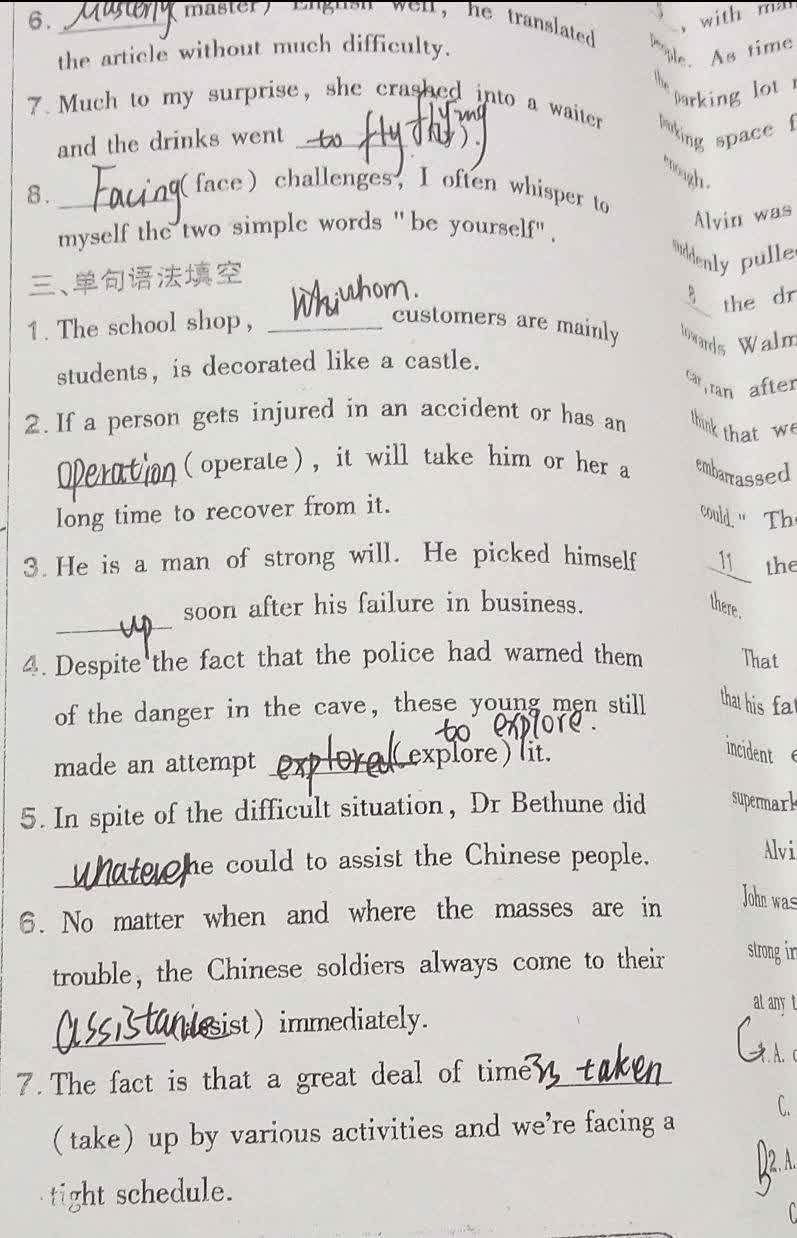 6. Mastering master) English well, he translated
the article without much difficulty.
7. Much to my surprise, she crashed into a waiter
and the drinks went to fly flying.
8. Facing (face) challenges, I often whisper to
myself the two simple words "be yourself".
三、单句语法填空
whom.
1. The school shop, ________ customers are mainly
students, is decorated like a castle.
2. If a person gets injured in an accident or has an
operation (operate), it will take him or her a
long time to recover from it.
3. He is a man of strong will. He picked himself
up soon after his failure in business.
4. Despite the fact that the police had warned them
of the danger in the cave, these young men still
to explore.
made an attempt explored (explore) it.
5. In spite of the difficult situation, Dr Bethune did
whatever he could to assist the Chinese people.
6. No matter when and where the masses are in
trouble, the Chinese soldiers always come to their
(assist) immediately.
7. The fact is that a great deal of time is taken
(take) up by various activities and we're facing a
tight schedule.
, with
people. As time
the parking lot
parking space
enough.
Alvin was
suddenly pulle
8 the dr
towards Walm
car, ran after
think that we
embarrassed
could." Th
11 the
there.
That
that his fat
incident
supermark
Alvi
John was
strong in
at any t
A.
C.
B 2. A.
C